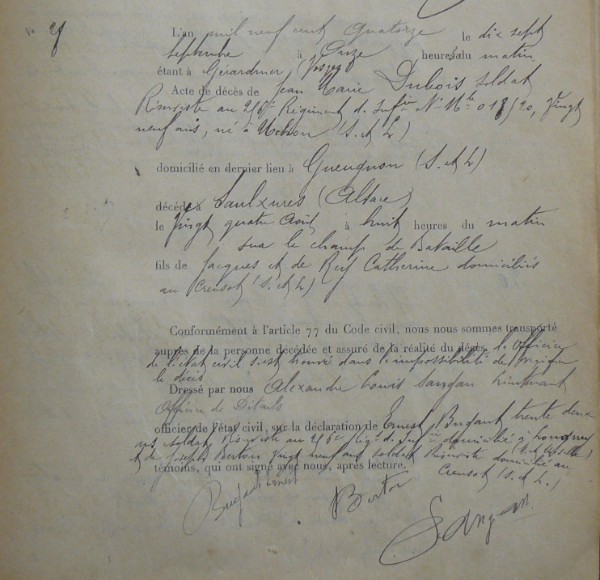 L'an mil neuf cent quatorze le dix sept
septembre à onze heures du matin
étant à Gérardmer (Vosges)
Acte de décès de Jean Marie Dubois soldat
Réserviste au 256e Régiment de Infie No Mle 018520, Vingt
neuf ans, né à (S. et L)
domicilié en dernier lieu à Gueugnon (S. et L)
décédé à Saulxures (Alsace)
le Vingt quatre Août à huit heures du matin
sur le champ de Bataille
fils de Jacques et de Catherine domiciliés
au Creusot (S. et L)
Conformément à l'article 77 du Code civil, nous nous sommes transporté
auprès de la personne décédée et assuré de la réalité du décès. l'officier
de l'état civil s'est trouvé dans l'impossibilité de
le décès
Dressé par nous Alexandre Louis Sangan lieutenant
Officier de Détails
officier de l'état civil, sur la déclaration de Ernest trente deux
ans soldat Réserviste au Rég. d'Inf domicilié à
et de Joseph Berton vingt neuf ans soldat Réserviste domicilié au
témoins, qui ont signé avec nous, après lecture. Creusot (S. et L.)
Ernest Berton Sangan